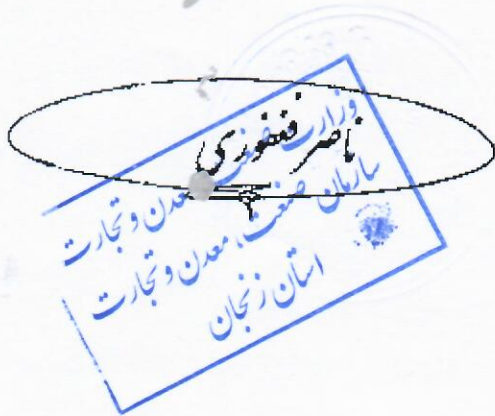 ناصر فغفوری
وزارت صنعت، معدن و تجارت
سازمان صنعت، معدن و تجارت
استان زنجان